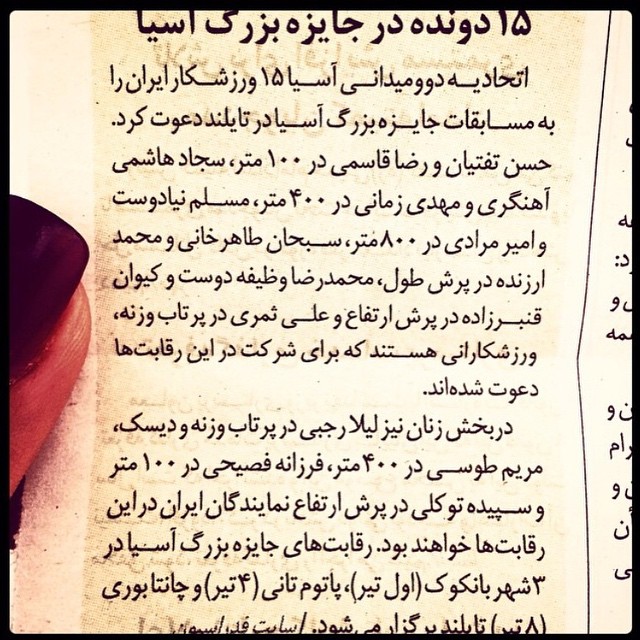 ۱۵ دونده در جایزه بزرگ آسیا
اتحادیه دوومیدانی آسیا ۱۵ ورزشکار ایران را
به مسابقات جایزه بزرگ آسیا در تایلند دعوت کرد.
حسن تفتیان و رضا قاسمی در ۱۰۰ متر، سجاد هاشمی
آهنگری و مهدی زمانی در ۴۰۰ متر، مسلم نیادوست
و امیر مرادی در ۸۰۰ متر، سبحان طاهرخانی و محمد
ارزنده در پرش طول، محمدرضا وظیفه دوست و کیوان
قنبرزاده در پرش ارتفاع و علی ثمری در پرتاب وزنه،
ورزشکارانی هستند که برای شرکت در این رقابت‌ها
دعوت شده‌اند.
دربخش زنان نیز لیلا رجبی در پرتاب وزنه و دیسک،
مریم طوسی در ۴۰۰ متر، فرزانه فصیحی در ۱۰۰ متر
و سپیده توکلی در پرش ارتفاع نمایندگان ایران در این
رقابت‌ها خواهند بود. رقابت‌های جایزه بزرگ آسیا در
۳ شهر بانکوک (اول تیر)، پاتوم تانی (۴ تیر) و چانتابوری
(۸ تیر) تایلند برگزار می‌شود. / سایت فدراسیون